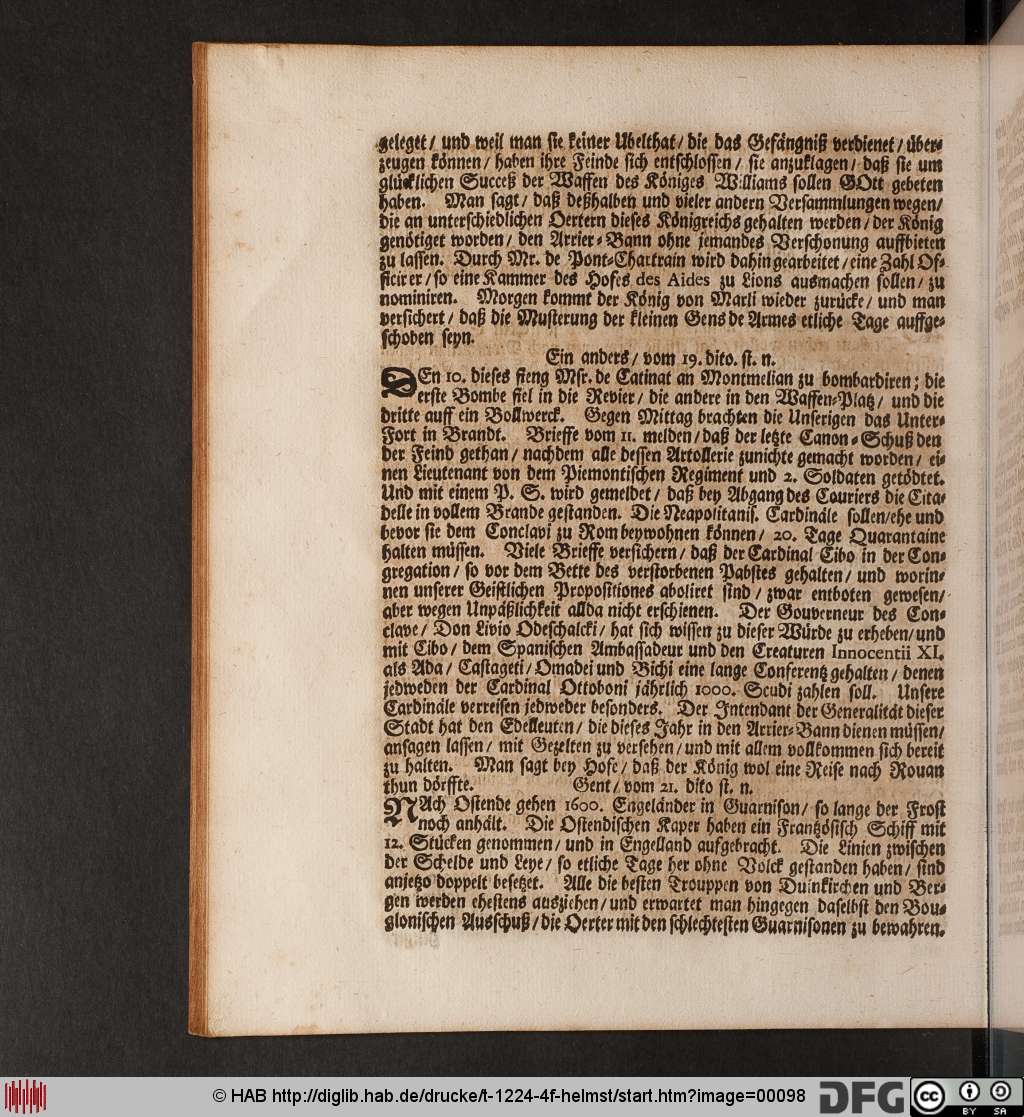 geleget / und weil man sie keiner Ubelthat / die das Gefängniß verdienet / über-
zeugen können / haben ihre Feinde sich entschlossen / sie anzuklagen / daß sie um
glücklichen Succeß der Waffen des Königes Williams sollen GOtt gebeten
haben. Man sagt / daß deßhalben und vieler andern Versammlungen wegen /
die an unterschiedlichen Oertern dieses Königreichs gehalten werden / der König
genötiget worden / den Arrier-Bann ohne jemandes Verschonung auffbieten
zu lassen. Durch Mr. de Pont-Chartrain wird dahin gearbeitet / eine Zahl Of-
ficirer / so eine Kammer des Hofes des Aides zu Lions ausmachen sollen / zu
nominiren. Morgen kommt der König von Marli wieder zurücke / und man
versichert / daß die Musterung der kleinen Gens de Armes etliche Tage auffge-
schoben seyn.
Ein anders / vom 19. dito. st. n.
DEn 10. dieses fieng Msr. de Catinat an Montmelian zu bombardiren; die
erste Bombe fiel in die Revier / die andere in den Waffen-Platz / und die
dritte auff ein Bollwerck. Gegen Mittag brachten die Unserigen das Unter-
Fort in Brandt. Brieffe vom 11. melden / daß der letzte Canon-Schuß den
der Feind gethan / nachdem alle dessen Artollerie zunichte gemacht worden / ei-
nen Lieutenant von dem Piemontischen Regiment und 2. Soldaten getödtet.
Und mit einem P. S. wird gemeldet / daß bey Abgang des Couriers die Cita-
delle in vollem Brande gestanden. Die Neapolitanis. Cardinäle sollen / ehe und
bevor sie dem Conclavi zu Rom beywohnen können / 20. Tage Quarantaine
halten müssen. Viele Brieffe versichern / daß der Cardinal Cibo in der Con-
gregation / so vor dem Bette des verstorbenen Pabstes gehalten / und worin-
nen unserer Geistlichen Propositiones aboliret sind / zwar entboten gewesen /
aber wegen Unpäßlichkeit allda nicht erschienen. Der Gouverneur des Con-
clave / Don Livio Odeschalcki / hat sich wissen zu dieser Würde zu erheben / und
mit Cibo / dem Spanischen Ambassadeur und den Creaturen Innocentii XI.
als Ada / Castageti / Omadei und Bichi eine lange Conferentz gehalten / denen
jedweden der Cardinal Ottoboni jährlich 1000. Scudi zahlen soll. Unsere
Cardinäle verreisen jedweder besonders. Der Intendant der Generalität dieser
Stadt hat den Edelleuten / die dieses Jahr in den Arrier-Bann dienen müssen /
ansagen lassen / mit Gezelten zu versehen / und mit allem vollkommen sich bereit
zu halten. Man sagt bey Hofe / daß der König wol eine Reise nach Rouan
thun dörffte. Gent / vom 21. dito st. n.
NAch Ostende gehen 1600. Engeländer in Guarnison / so lange der Frost
noch anhält. Die Ostendischen Kaper haben ein Frantzösisch Schiff mit
12. Stücken genommen / und in Engelland aufgebracht. Die Linien zwischen
der Schelde und Leye / so etliche Tage her ohne Volck gestanden haben / sind
anjetzo doppelt besetzet. Alle die besten Trouppen von Duinkirchen und Ber-
gen werden ehestens ausziehen / und erwartet man hingegen daselbst den Bou-
glonischen Ausschuß / die Oerter mit den schlechtesten Guarnisonen zu bewahren.
© HAB http://diglib.hab.de/drucke/t-1224-4f-helmst/start.htm?image=00098
DFG
cc
BY SA